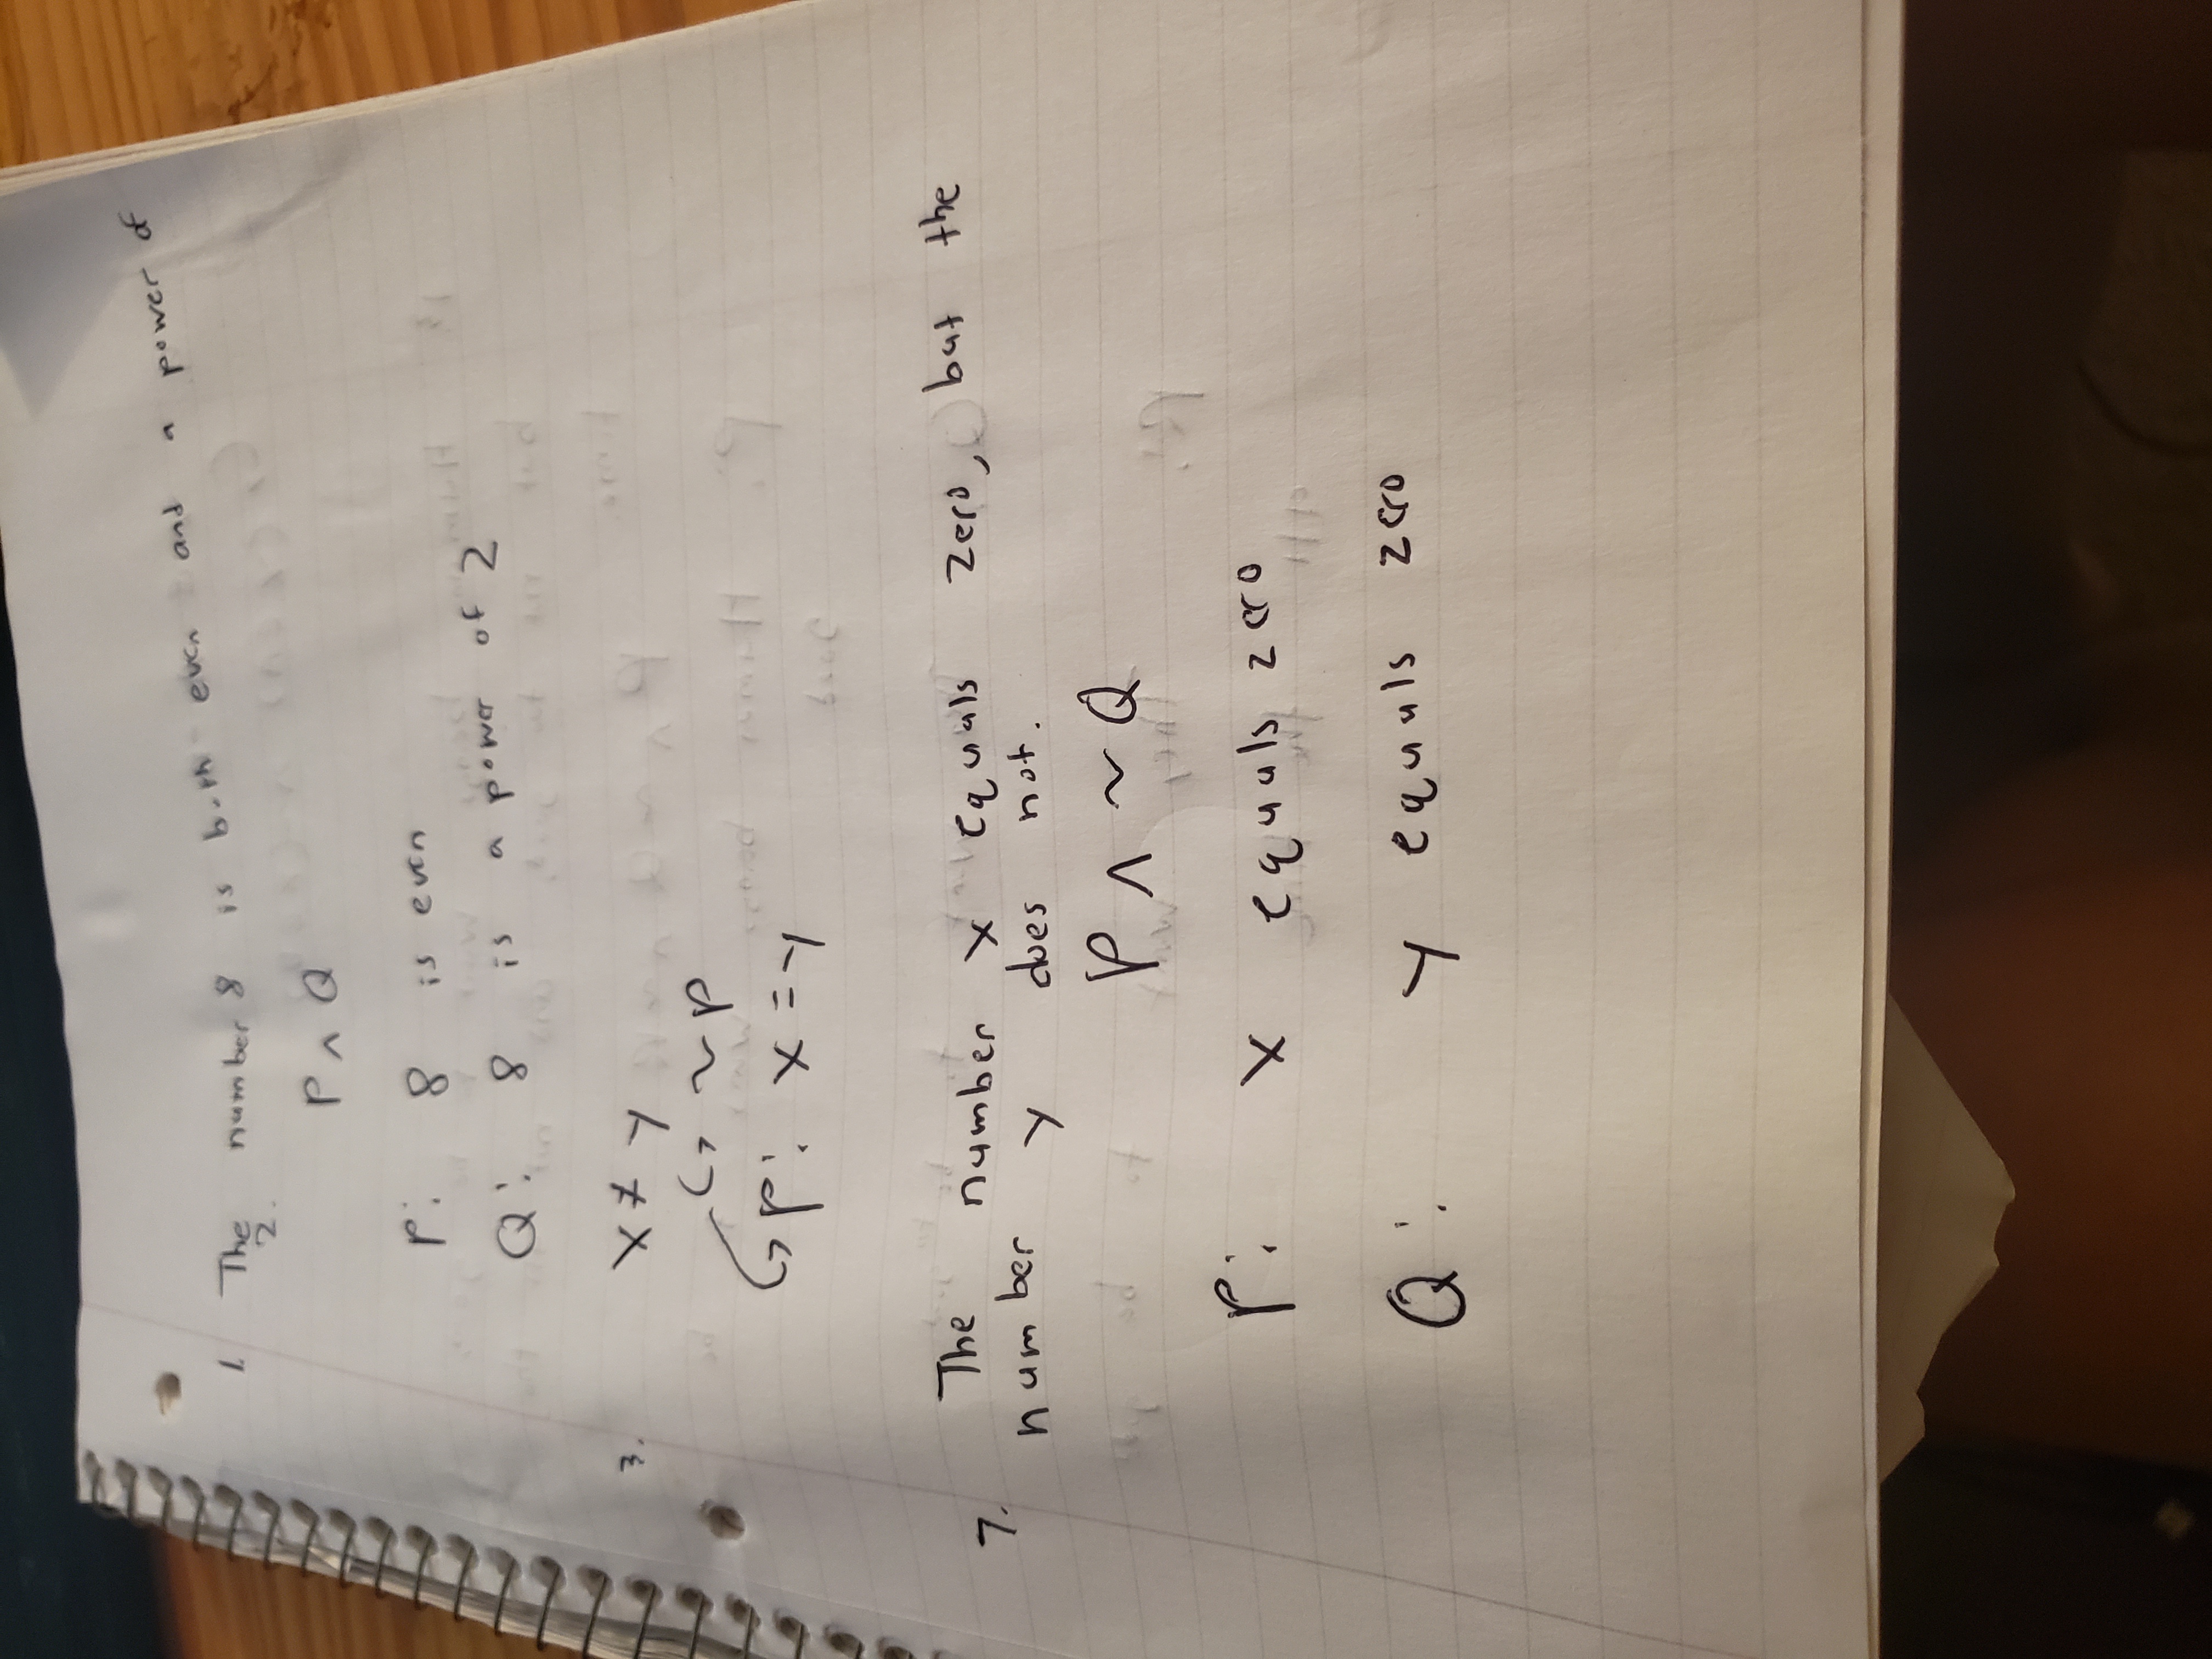 1. The number 8 is both even and a power of
2.
P ∧ Q
P: 8 is even
Q: 8 is a power of 2
3. x ≠ y
↪ ~P
↪ P: x = y
7. The number x equals zero, but the
number y does not.
P ∧ ~Q
P: x equals zero
Q: y equals zero